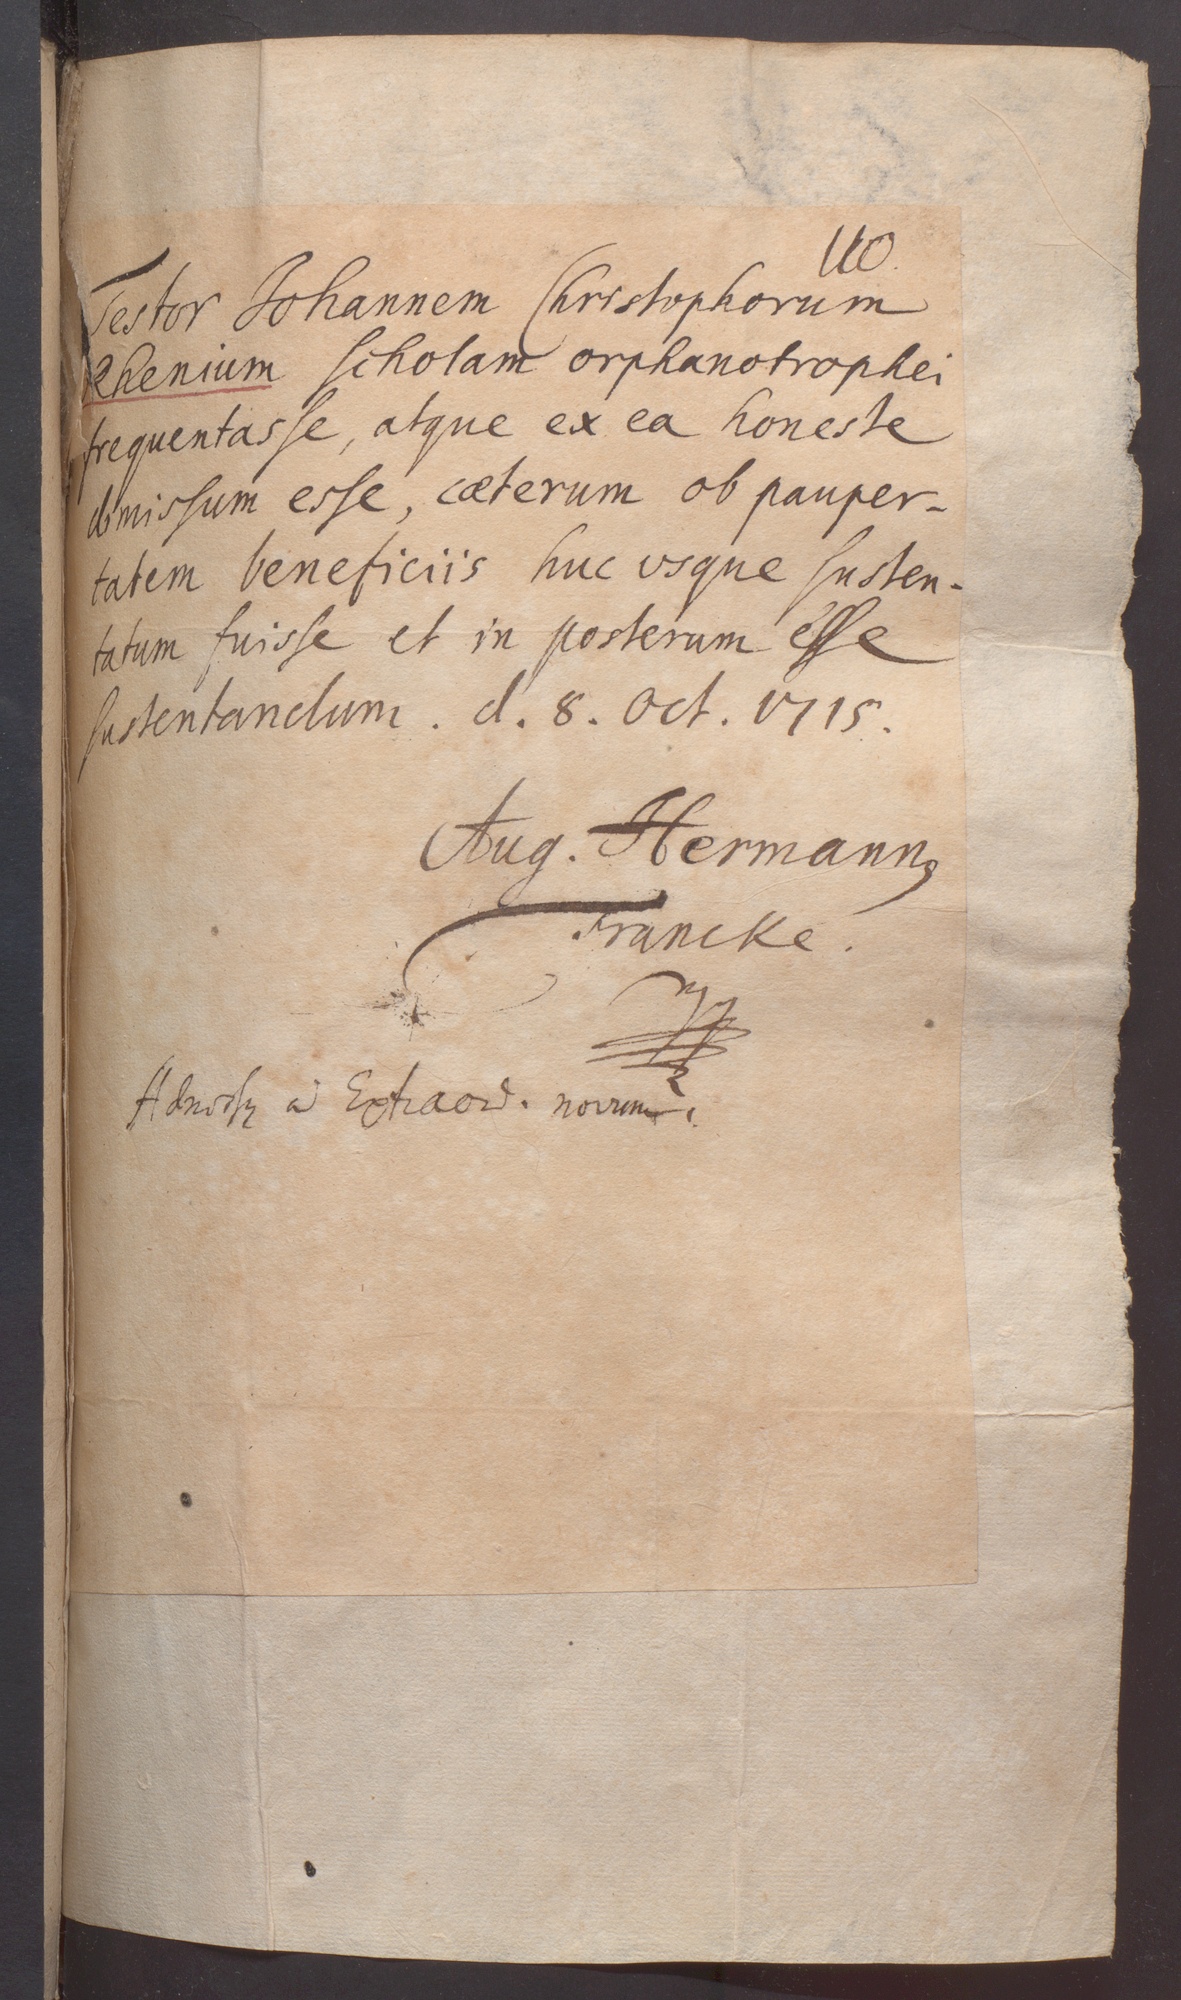 Testor Johannem Christophorum
Rhenium scholam orphanotrophei
frequentasse, atque ex ea honeste
dimissum esse, cæterum ob pauper-
tatem beneficiis huc usque susten-
tatum fuisse et in posterum esse
sustentandum. d. 8. Oct. 1715.
Aug. Hermann
Francke.
ad Extraord. novum.